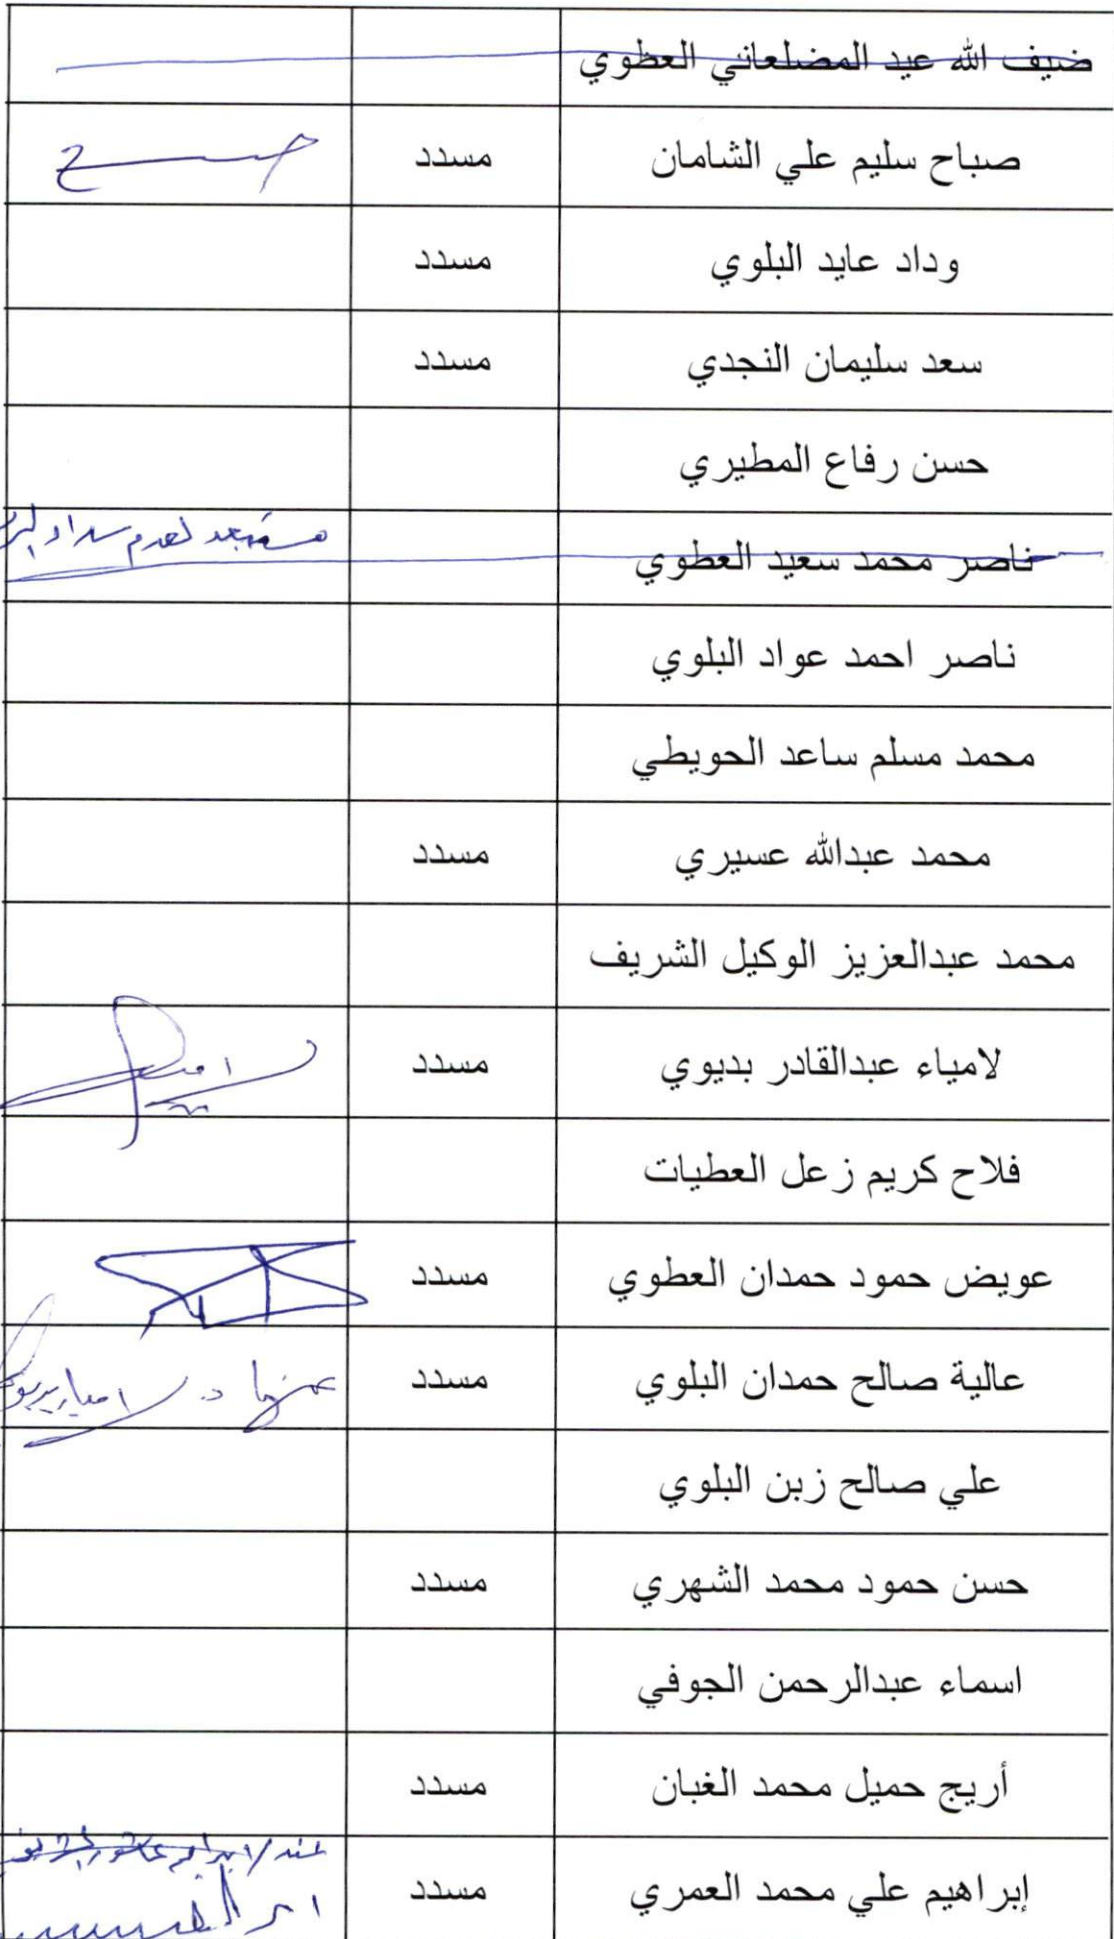 ضيف الله عيد المضلعاني العطوي
صباح سليم علي الشامان مسدد
وداد عايد البلوي مسدد
سعد سليمان النجدي مسدد
حسن رفاع المطيري
ناصر محمد سعيد العطوي مستبعد لعدم سداد
ناصر احمد عواد البلوي
محمد مسلم ساعد الحويطي
محمد عبدالله عسيري مسدد
محمد عبدالعزيز الوكيل الشريف
لامياء عبدالقادر بديوي مسدد
فلاح كريم زعل العطيات
عويض حمود حمدان العطوي مسدد
عالية صالح حمدان البلوي مسدد عنها د. لامياء بديوي
علي صالح زبن البلوي
حسن حمود محمد الشهري مسدد
اسماء عبدالرحمن الجوفي
أريج حميل محمد الغبان مسدد
إبراهيم علي محمد العمري مسدد